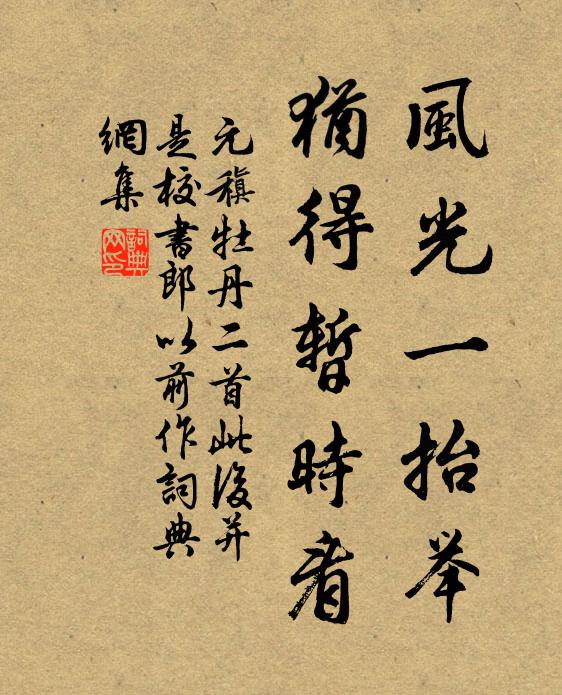 風光一抬举
猶得暫時看
元稹牡丹二首此後并
是校書郎以前作詞典
網集
詞典网印